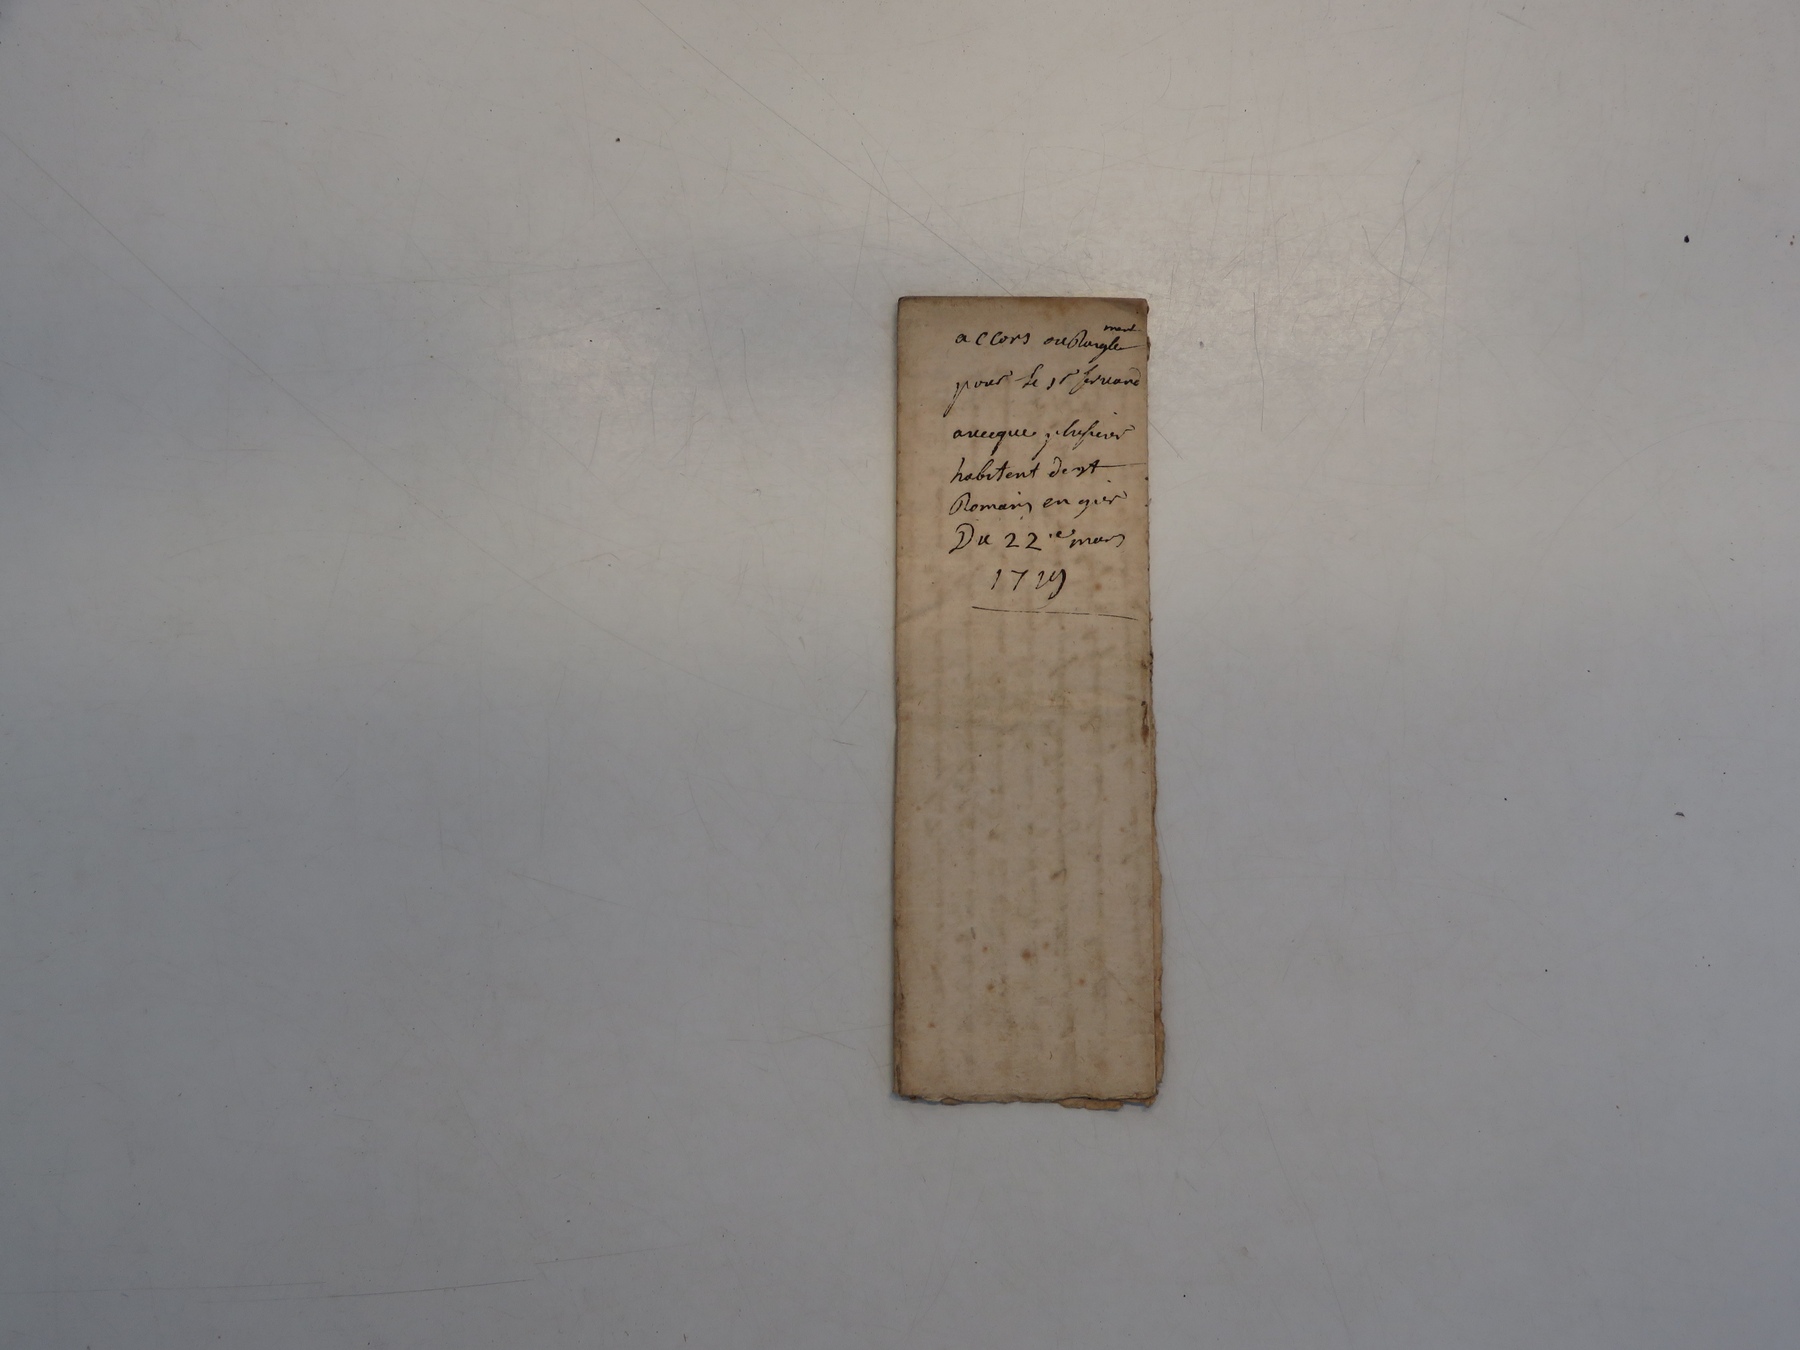 accors ou Raiglement
pour le sr feruand
auecque plusieur
habitent de st
Romain en gier
Du 22e mars
1719